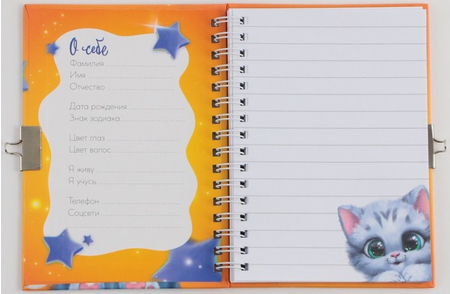 О себе
Фамилия
Имя
Отчество
Дата рождения
Знак зодиака
Цвет глаз
Цвет волос
Я живу
Я учусь
Телефон
Соцсети